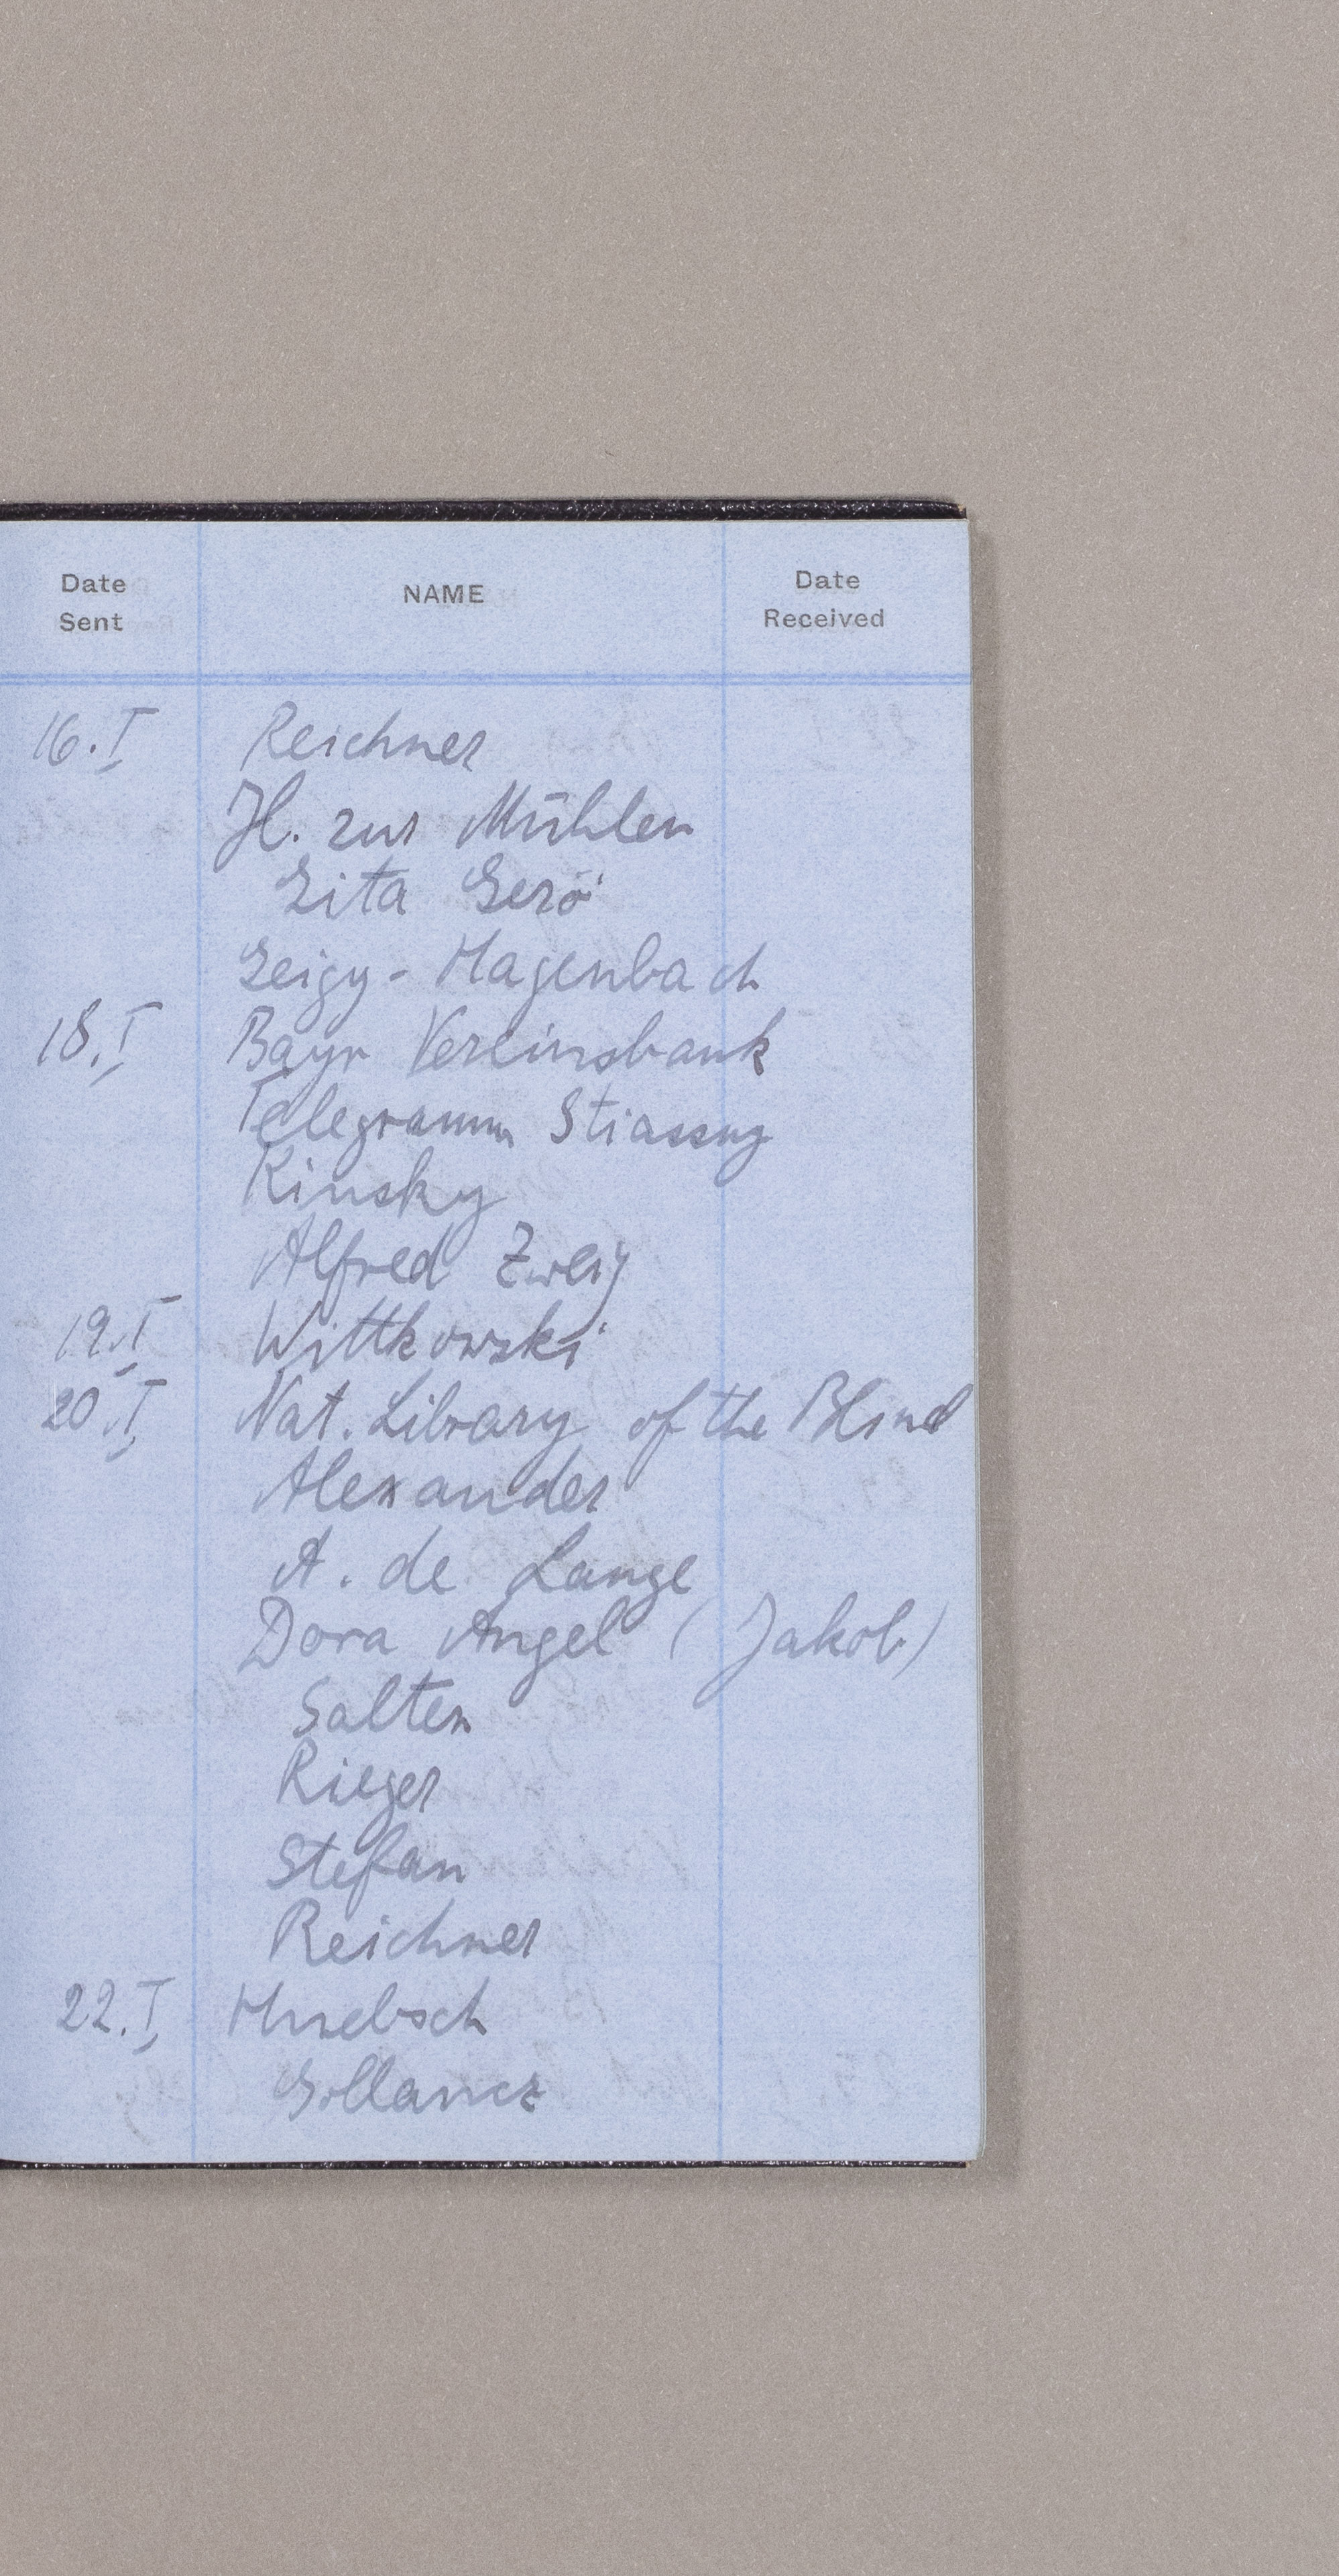 Date Sent NAME Date Received
16.I Reichner
H. zur Mühlen
Gita Gerö
Geigy-Hagenbach
18.I Bayr Vereinsbank
Telegramm Stiassny
Kinsky
Alfred Zweig
19.I Wittkowski
20.I Nat. Library of the Blind
Alexander
A. de Lange
Dora Angel (Jakob)
Salten
Rieger
Stefan
Reichner
22.I Huebsch
Gollancz